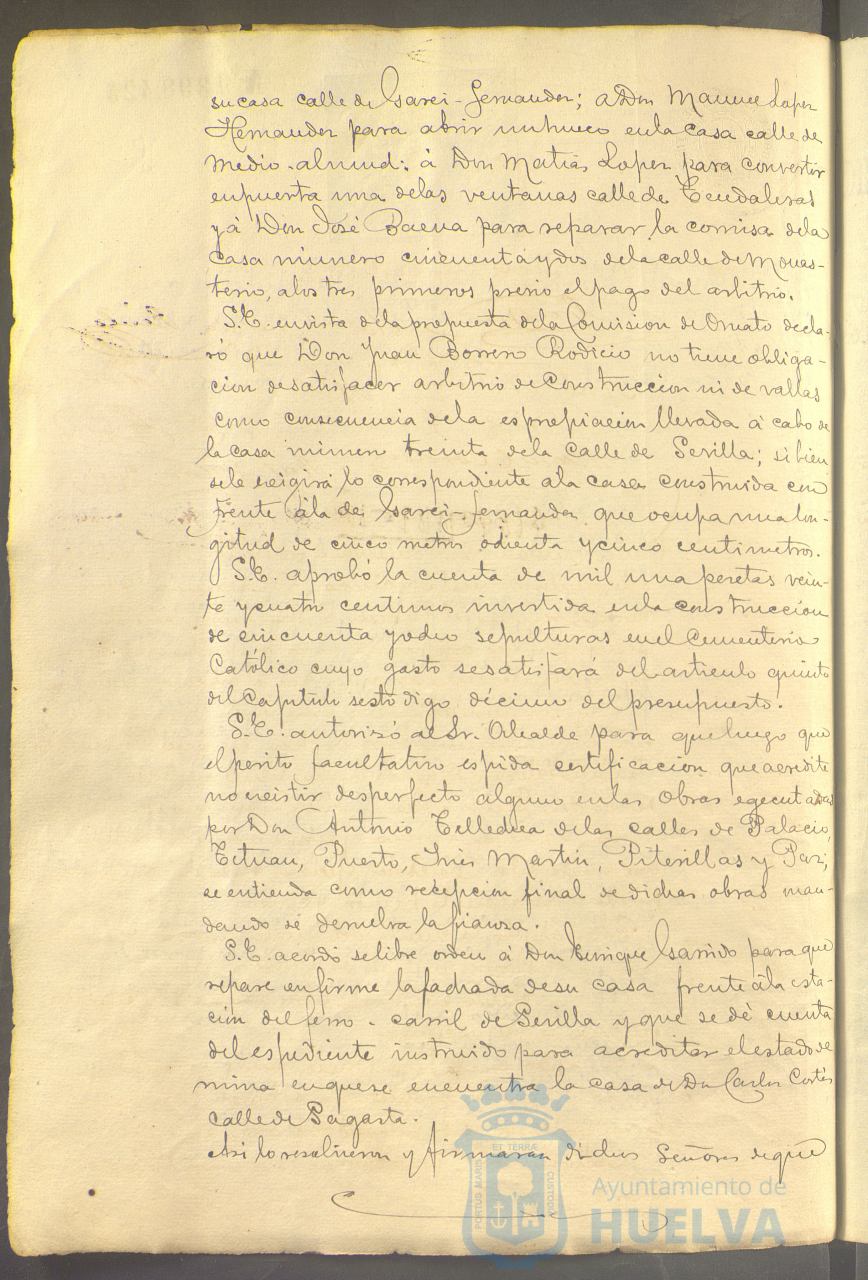 su casa calle de Garci-Fernandez; a Don Manuel Lopez
Hernandez para abrir un hueco en la casa calle de
Medio-almud: á Don Matias Lopez para convertir
en puerta una de las ventanas calle de Tendaleras
y á Don José Baena para reparar la cornisa de la
casa número cincuenta y dos de la calle de Monas-
terio, a los tres primeros previo el pago del arbitrio.
S.E. en vista de la propuesta de la Comision de Ornato decla-
ró que Don Juan Borrero Rodicio no tiene obliga-
cion de satisfacer arbitrio de construccion ni de vallas
como consecuencia de la espropiacion llevada á cabo de
la casa número treinta de la calle de Sevilla; si bien
se le exigirá lo correspondiente a la casa construida con
frente á la de Garci-Fernandez que ocupa una lon-
gitud de cinco metros ochenta y cinco centimetros.
S.E. aprobó la cuenta de mil una pesetas vein-
te y cuatro centimos invertida en la construccion
de cincuenta y ocho sepulturas en el Cementerio
Católico cuyo gasto se satisfará del articulo quinto
del Capitulo sesto digo décimo del presupuesto.
S.E. autorizó al Sr. Alcalde para que luego que
el perito facultativo espida certificacion que acredite
no existir desperfecto alguno en las obras egecutadas
por Don Antonio Tellechea de las calles de Palacio,
Tetuan, Puerto, Inés Martin, Piterillas y Paz,
se entienda como recepcion final de dichas obras man-
dando se devuelva la fianza.
S.E. acordó se libre orden á Don Enrique Garrido para que
repare en firme la fachada de su casa frente á la esta-
cion del ferro-carril de Sevilla y que se dé cuenta
del espediente instruido para acreditar el estado de
ruina en que se encuentra la casa de Don Carlos Cortés
calle de Sagasta.
Asi lo resolvieron y firmaran dichos Señores de que
PORTUS MARIS ET TERRÆ CUSTODIA
Ayuntamiento de
HUELVA